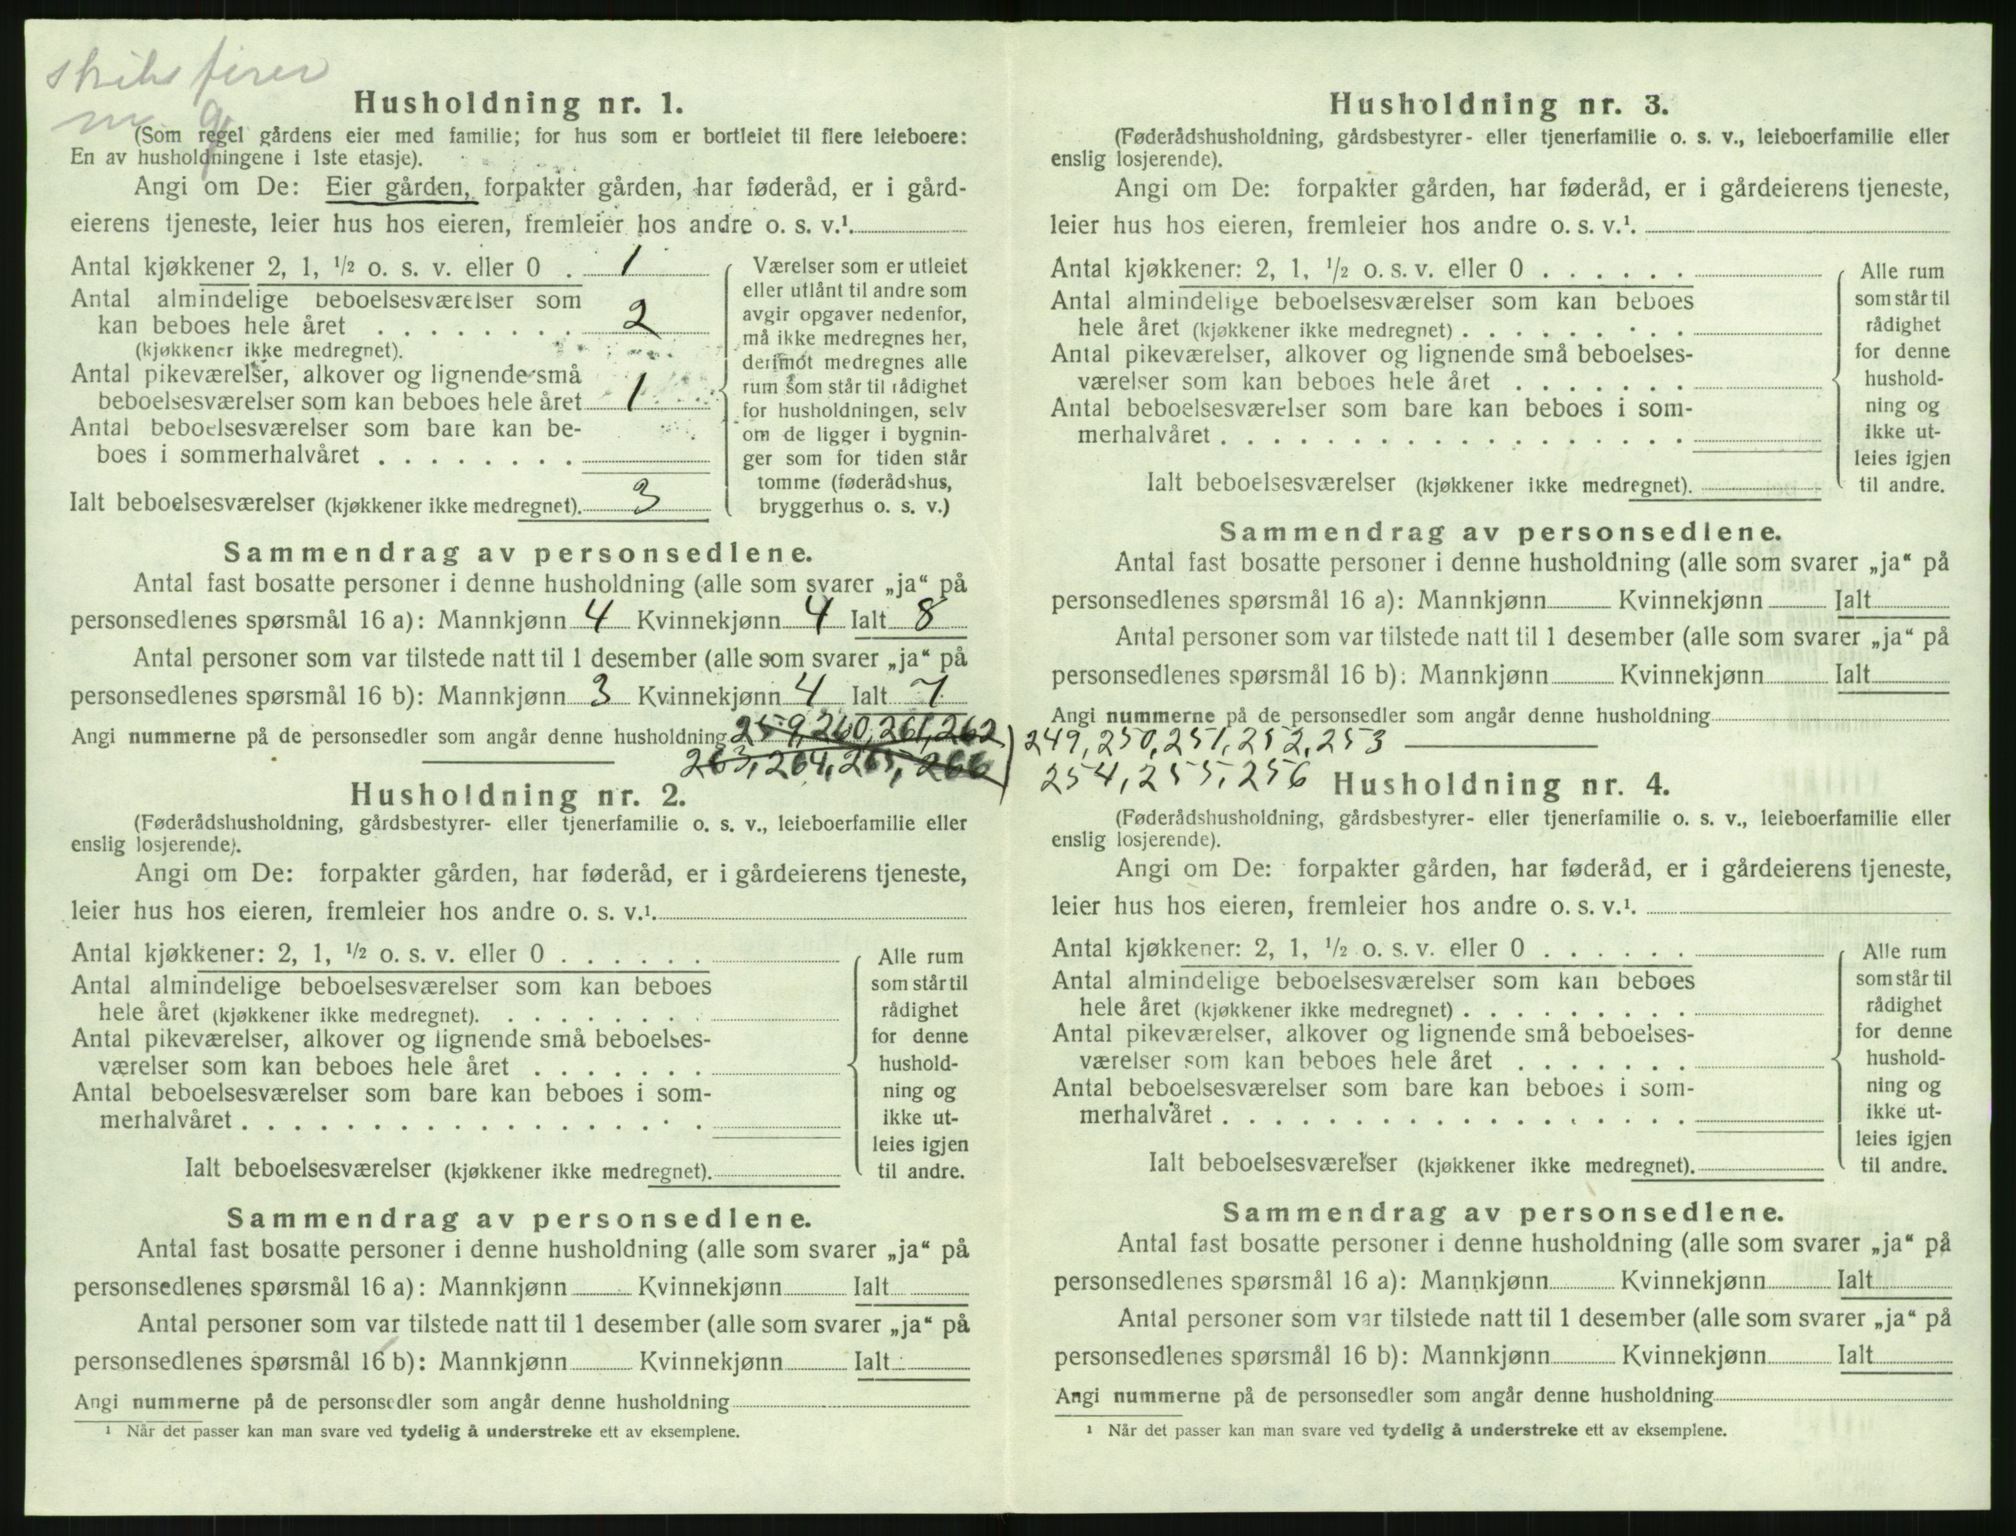 Husholdning nr. 1.
(Som regel gårdens eier med familie; for hus som er bortleiet til flere leieboere:
En av husholdningene i 1ste etasje).
Angi om De: Eier gården, forpakter gården, har føderåd, er i gård-
eierens tjeneste, leier hus hos eieren, fremleier hos andre o. s. v.¹.
Antal kjøkkener 2, 1, ½ o. s. v. eller 0 . 1
Antal almindelige beboelsesværelser som
kan beboes hele året . . . . . . . . 2
(kjøkkener ikke medregnet).
Antal pikeværelser, alkover og lignende små
beboelsesværelser som kan beboes hele året 1
Antal beboelsesværelser som bare kan be-
boes i sommerhalvåret . . . . . . . .
Ialt beboelsesværelser (kjøkkener ikke medregnet). 3
Værelser som er utleiet
eller utlånt til andre som
avgir opgaver nedenfor,
må ikke medregnes her,
derimot medregnes alle
rum som står til rådighet
for husholdningen, selv
om de ligger i bygnin-
ger som for tiden står
tomme (føderådshus,
bryggerhus o. s. v.)
Sammendrag av personsedlene.
Antal fast bosatte personer i denne husholdning (alle som svarer „ja“ på
personsedlenes spørsmål 16 a): Mannkjønn 4 Kvinnekjønn 4 Ialt 8
Antal personer som var tilstede natt til 1 desember (alle som svarer „ja“ på
personsedlenes spørsmål 16 b): Mannkjønn 3 Kvinnekjønn 4 Ialt 7
Angi nummerne på de personsedler som angår denne husholdning 259, 260, 261, 262
263, 264, 265, 266
249, 250, 251, 252, 253
254, 255, 256
Husholdning nr. 2.
(Føderådshusholdning, gårdsbestyrer- eller tjenerfamilie o. s. v., leieboerfamilie eller
enslig losjerende).
Angi om De: forpakter gården, har føderåd, er i gårdeierens tjeneste,
leier hus hos eieren, fremleier hos andre o. s. v.¹.
Antal kjøkkener: 2, 1, ½ o. s. v. eller 0 . . . . . .
Antal almindelige beboelsesværelser som kan beboes
hele året (kjøkkener ikke medregnet). . . . . . . . .
Antal pikeværelser, alkover og lignende små beboelses-
værelser som kan beboes hele året . . . . . . .
Antal beboelsesværelser som bare kan beboes i som-
merhalvåret . . . . . . . . . . . . . . . . . .
Ialt beboelsesværelser (kjøkkener ikke medregnet).
Alle rum
som står til
rådighet
for denne
hushold-
ning og
ikke ut-
leies igjen
til andre.
Sammendrag av personsedlene.
Antal fast bosatte personer i denne husholdning (alle som svarer „ja“ på
personsedlenes spørsmål 16 a): Mannkjønn Kvinnekjønn Ialt
Antal personer som var tilstede natt til 1 desember (alle som svarer „ja“ på
personsedlenes spørsmål 16 b): Mannkjønn Kvinnekjønn Ialt
Angi nummerne på de personsedler som angår denne husholdning
¹ Når det passer kan man svare ved tydelig å understreke ett av eksemplene.
Husholdning nr. 3.
(Føderådshusholdning, gårdsbestyrer- eller tjenerfamilie o. s. v., leieboerfamilie eller
enslig losjerende).
Angi om De: forpakter gården, har føderåd, er i gårdeierens tjeneste,
leier hus hos eieren, fremleier hos andre o. s. v.¹.
Antal kjøkkener: 2, 1, ½ o. s. v. eller 0 . . . . . .
Antal almindelige beboelsesværelser som kan beboes
hele året (kjøkkener ikke medregnet) . . . . . . . . .
Antal pikeværelser, alkover og lignende små beboelses-
værelser som kan beboes hele året . . . . . . .
Antal beboelsesværelser som bare kan beboes i som-
merhalvåret . . . . . . . . . . . . . . . . . .
Ialt beboelsesværelser (kjøkkener ikke medregnet).
Alle rum
som står til
rådighet
for denne
hushold-
ning og
ikke ut-
leies igjen
til andre.
Sammendrag av personsedlene.
Antal fast bosatte personer i denne husholdning (alle som svarer „ja“ på
personsedlenes spørsmål 16 a): Mannkjønn Kvinnekjønn Ialt
Antal personer som var tilstede natt til 1 desember (alle som svarer „ja“ på
personsedlenes spørsmål 16 b): Mannkjønn Kvinnekjønn Ialt
Angi nummerne på de personsedler som angår denne husholdning
Husholdning nr. 4.
(Føderådshusholdning, gårdsbestyrer- eller tjenerfamilie o. s. v., leieboerfamilie eller
enslig losjerende).
Angi om De: forpakter gården, har føderåd, er i gårdeierens tjeneste,
leier hus hos eieren, fremleier hos andre o. s. v.¹.
Antal kjøkkener: 2, 1, ½ o. s. v. eller 0 . . . . . .
Antal almindelige beboelsesværelser som kan beboes
hele året (kjøkkener ikke medregnet) . . . . . . . . .
Antal pikeværelser, alkover og lignende små beboelses-
værelser som kan beboes hele året . . . . . . .
Antal beboelsesværelser som bare kan beboes i som-
merhalvåret . . . . . . . . . . . . . . . . . .
Ialt beboelsesværelser (kjøkkener ikke medregnet).
Alle rum
som står til
rådighet
for denne
hushold-
ning og
ikke ut-
leies igjen
til andre.
Sammendrag av personsedlene.
Antal fast bosatte personer i denne husholdning (alle som svarer „ja“ på
personsedlenes spørsmål 16 a): Mannkjønn Kvinnekjønn Ialt
Antal personer som var tilstede natt til 1 desember (alle som svarer „ja“ på
personsedlenes spørsmål 16 b): Mannkjønn Kvinnekjønn Ialt
Angi nummerne på de personsedler som angår denne husholdning
¹ Når det passer kan man svare ved tydelig å understreke ett av eksemplene.